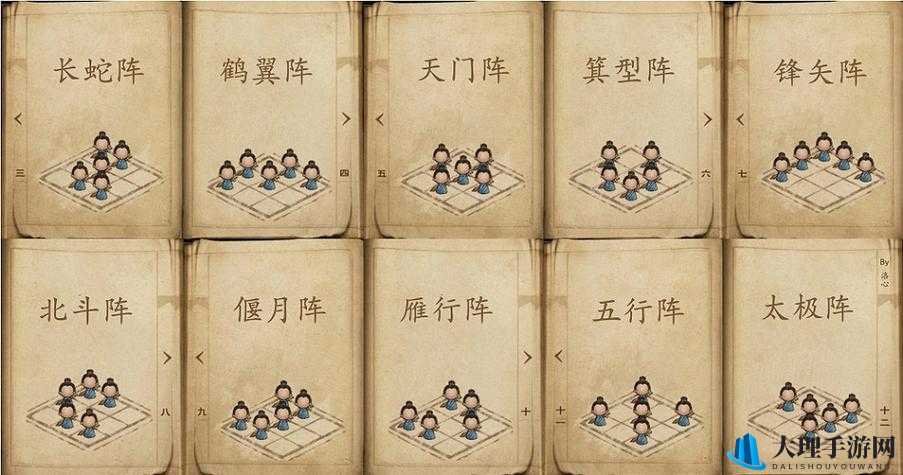 长蛇阵
三
鹤翼阵
四
天门阵
五
箕型阵
六
锋矢阵
七
北斗阵
八
偃月阵
九
雁行阵
十
五行阵
十一
太极阵
十二
By 洛心
大理手游网
DALISHOUYOUWANG